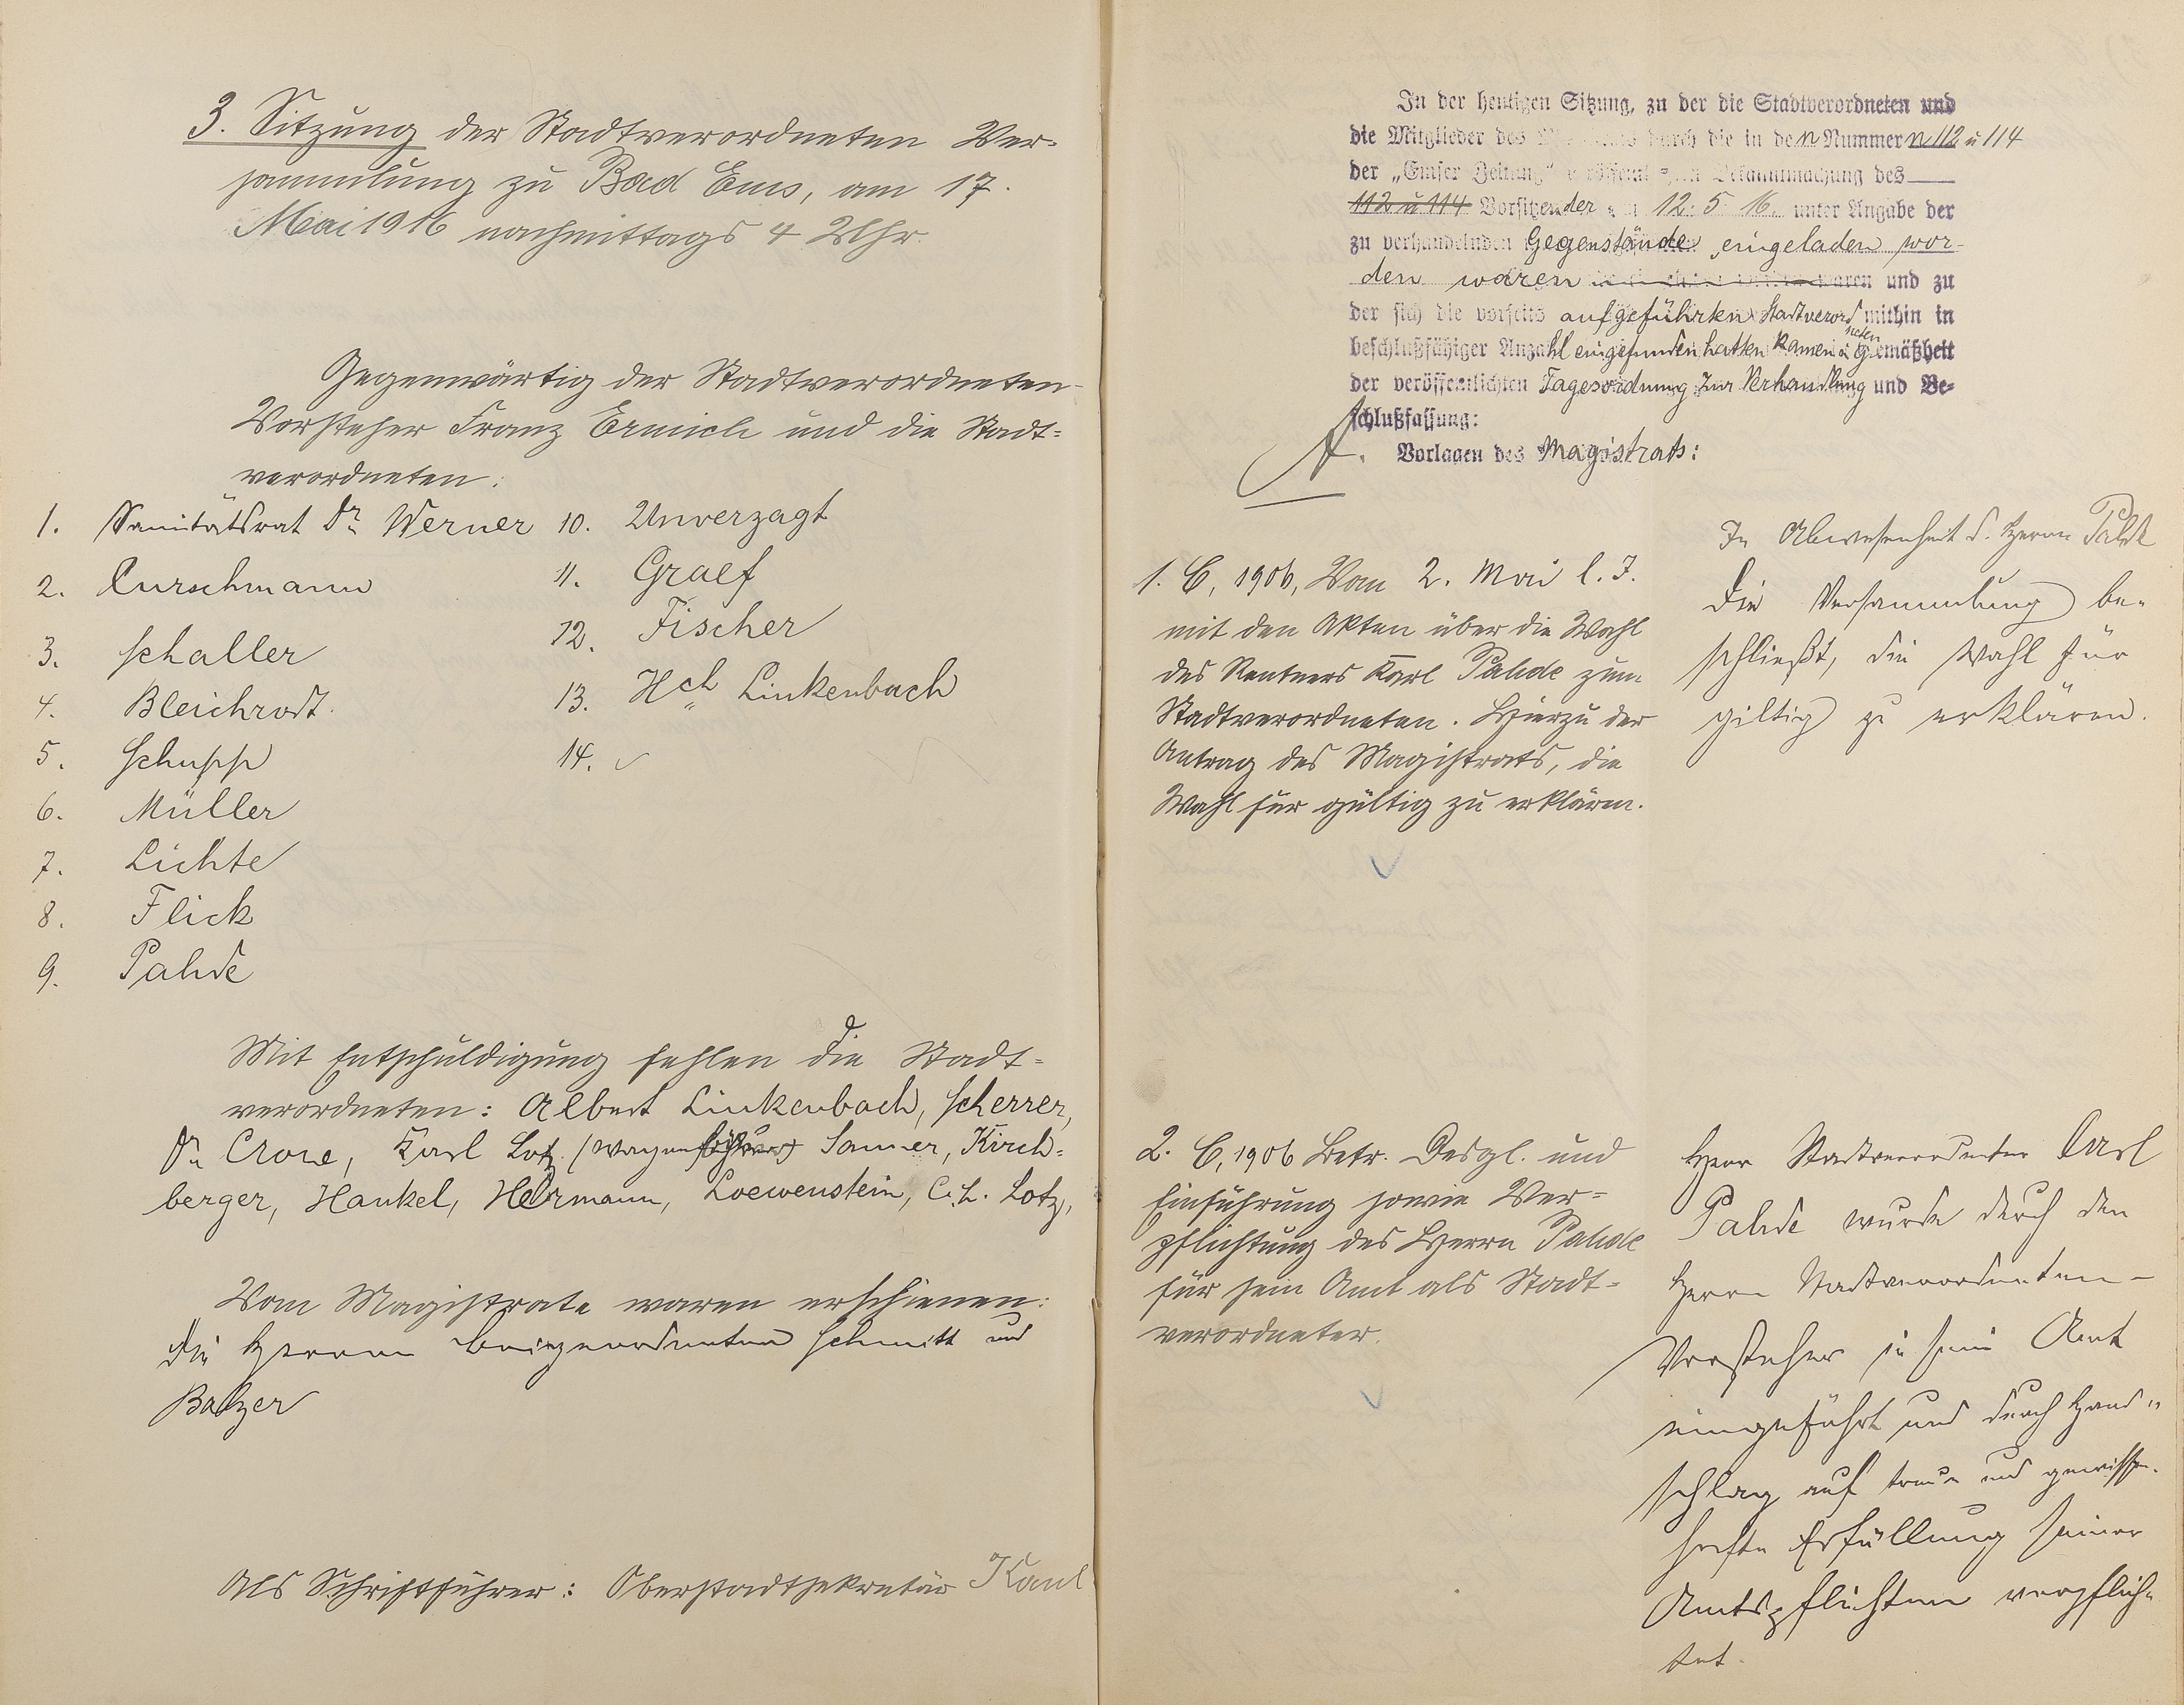 3. Sitzung der Stadtverordneten Ver-
sammlung zu Bad Ems, am 17.
Mai 1916 nachmittags 4 Uhr.
Gegenwärtig der Stadtverordneten-
Vorsteher Franz Ermisch und die Stadt=
verordneten:
1. Sanitätsrat Dr. Werner
2. Curschmann
3. Schaller
4. Bleichrodt.
5. Schupp
6. Müller
7. Lichte
8. Flick
9. Pahde
10. Unverzagt
11. Graef
12. Fischer
13. Hch Linkenbach
14.
Mit Entschuldigung fehlen die Stadt=
verordneten: Albert Linkenbach, Scherrer,
Dr. Crone, Karl Lotz, Sanner, Kirch=
berger, Hankel, Hermann, Loewenstein, C. H. Lotz,
Vom Magistrate waren erschienen:
Die Herren Beigeordneten Schmitt und
Balzer
Als Schriftführer: Oberstadtsekretär Kaul
In der heutigen Sitzung, zu der die Stadtverordneten und
die Mitglieder des Magistrats durch die in den Nummern 112 u 114
der „Emser Zeitung" veröffentlichten Bekanntmachung des
112 u 114 Vorsitzender am 12. 5. 16. unter Angabe der
zu verhandelnden Gegenstände eingeladen wor-
den waren und zu
der sich die vorseits aufgeführten Stadtverordneten mithin in
beschlußfähiger Anzahl eingefunden hatten kamen in Gemäßheit
der veröffentlichten Tagesordnung zur Verhandlung und Be-
schlußfassung:
A. Vorlagen des Magistrats:
1. C, 1906, Vom 2. Mai l. J.
mit den Akten über die Wahl
des Rentners Karl Pahde zum
Stadtverordneten. Hierzu der
Antrag des Magistrats, die
Wahl für gültig zu erklären.
In Abwesenheit d. Herrn Pahde
Die Versammlung be-
schließt, die Wahl für
giltig zu erklären.
2. C, 1906 Betr. Desgl. und
Einführung sowie Ver=
pflichtung des Herrn Pahde
für sein Amt als Stadt=
verordneter.
Herr Stadtverordneter Carl
Pahde wurde durch den
Herrn Stadtverordneten-
Vorsteher in sein Amt
eingeführt und durch Hand-
schlag auf treue und gewissen-
hafte Erfüllung seiner
Amtspflichten verpflich-
tet.